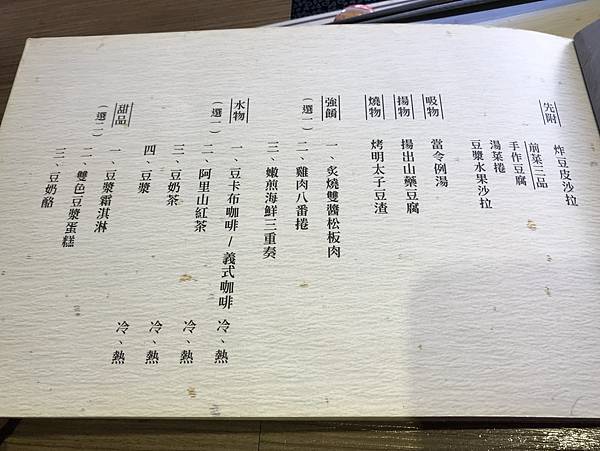 先附
炸豆皮沙拉
前菜三品
手作豆腐
湯菜捲
豆漿水果沙拉
吸物
當令例湯
揚物
揚出山藥豆腐
燒物
烤明太子豆渣
強餚
（選一）
一、炙燒雙醬松板肉
二、雞肉八番捲
三、嫩煎海鮮三重奏
水物
（選一）
一、豆卡布咖啡/義式咖啡 冷、熱
二、阿里山紅茶 冷、熱
三、豆奶茶 冷、熱
四、豆漿 冷、熱
甜品
（選二）
一、豆漿霜淇淋
二、雙色豆漿蛋糕
三、豆奶酪